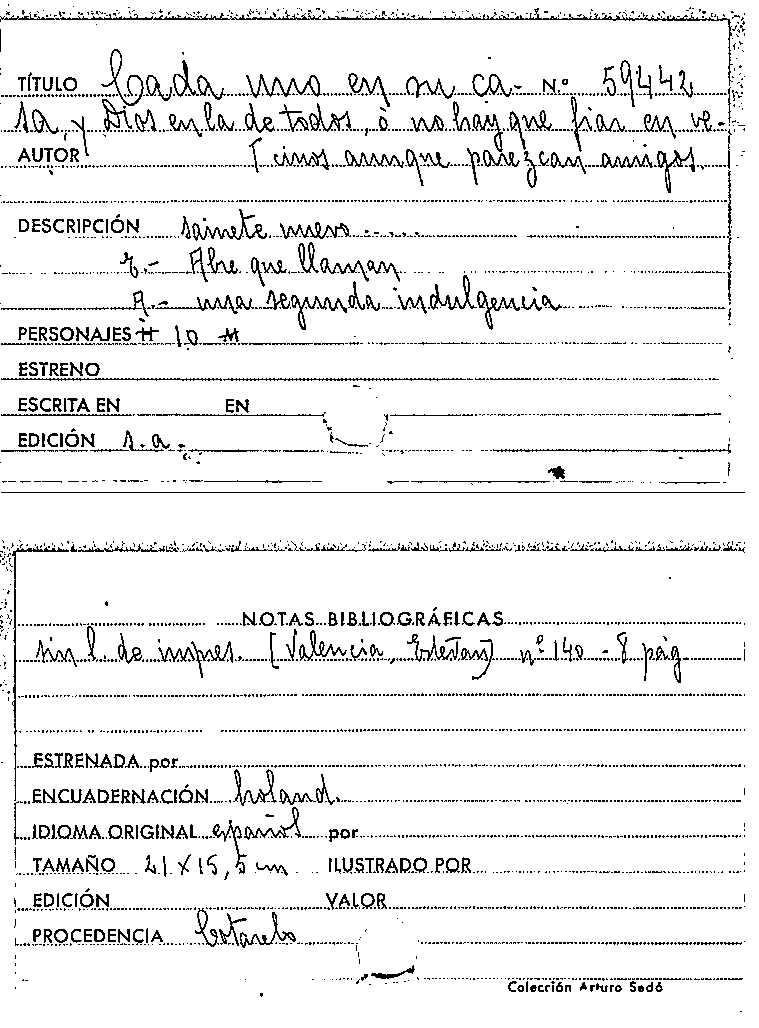 TÍTULO Cada uno en su ca- N.º 59442
sa, y Dios en la de todos, ò no hay que fiar en ve-
AUTOR cinos aunque parezcan amigos.
DESCRIPCIÓN sainete nuevo .....
E.- Abre que llaman
A.- una segunda indulgencia
PERSONAJES H 10 M
ESTRENO
ESCRITA EN EN
EDICIÓN s.a.
NOTAS BIBLIOGRÁFICAS
sin l. de impres. [Valencia, Estevan] nº 140 - 8 pág
ESTRENADA por
ENCUADERNACIÓN holand.
IDIOMA ORIGINAL español por
TAMAÑO 21 X 15,5 cm ILUSTRADO POR
EDICIÓN VALOR
PROCEDENCIA Cotarelo
Colección Arturo Sedó